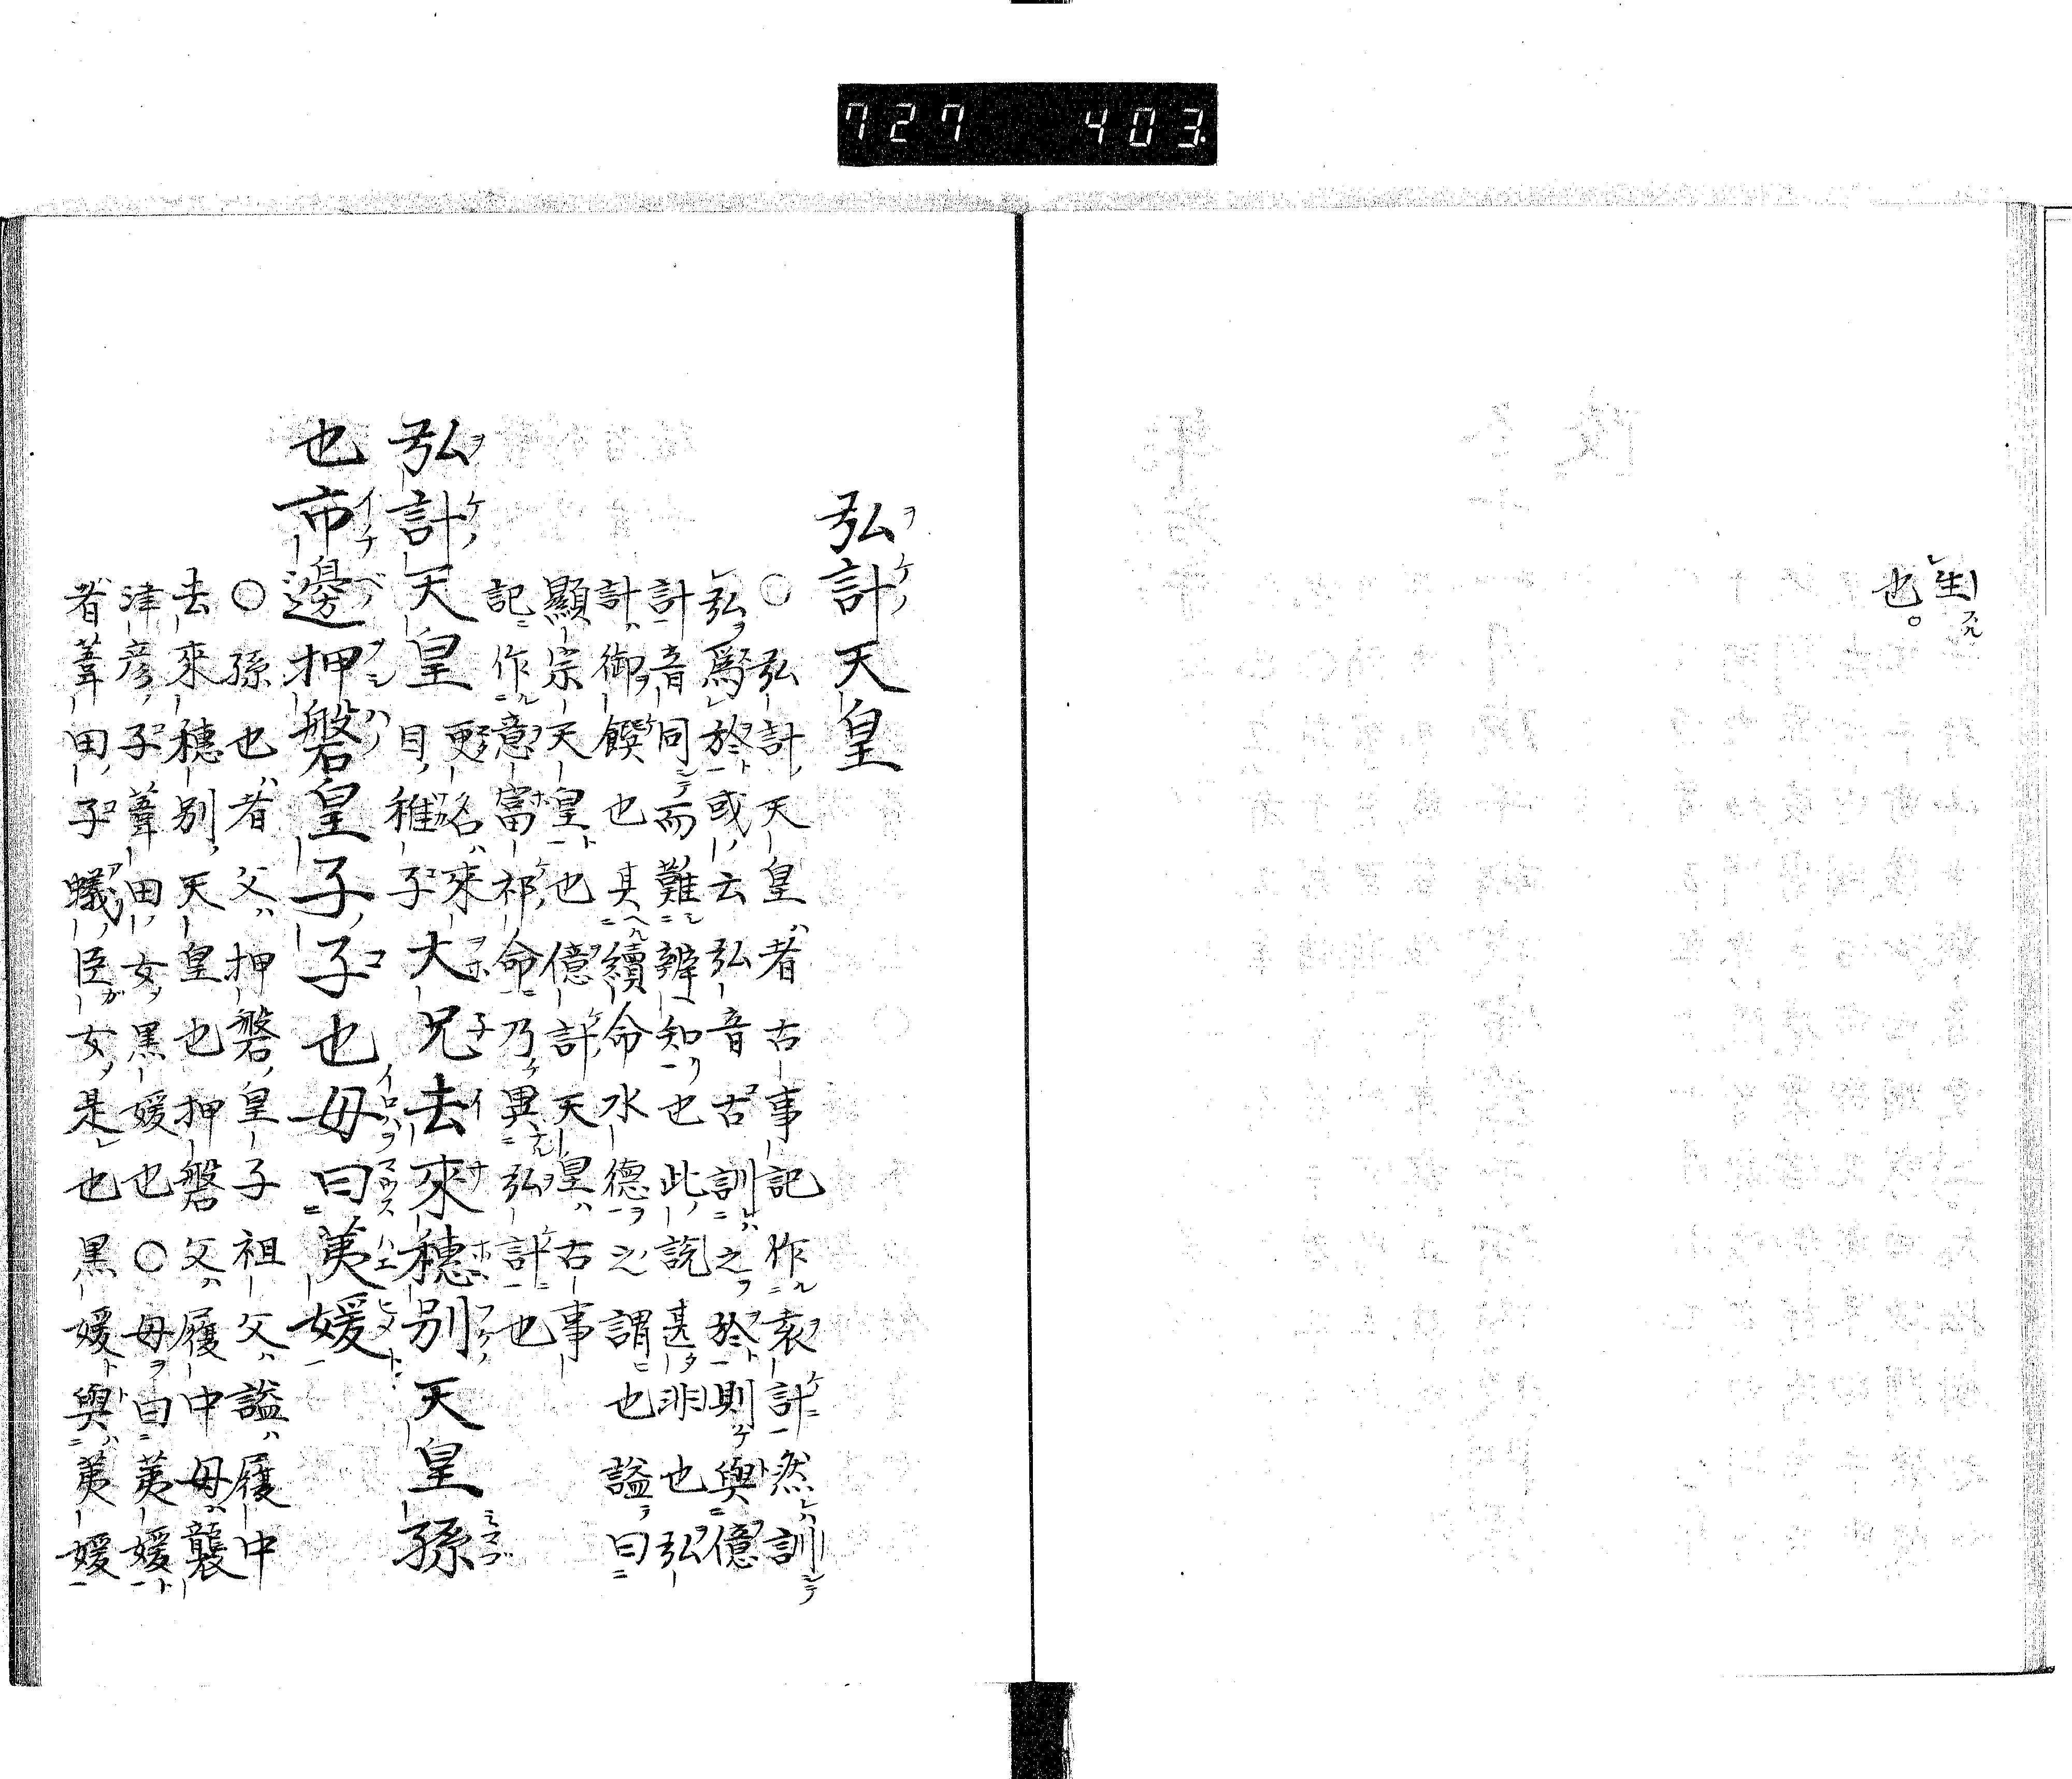 727 403
生
也。
弘計天皇
○弘計天皇者古事記作袁計然訓
弘爲於或云弘音古訓之於則與億
計音同而難辨知也此説甚非也弘
計御饌也其續命水德之謂也謚曰
顯宗天皇也億計天皇古事
記作意富祁命乃異弘計也
弘計天皇更名來大兄去來穗別天皇孫
目稚子
也市邊押磐皇子子也母曰荑媛
○孫也者父押磐皇子祖父謚履中
去來穗別天皇也押磐父履中母襲
津彦子葦田女黑媛也○母曰荑媛
者葦田子蟻臣女是也黑媛與荑媛